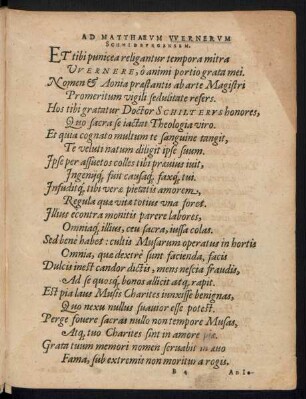 AD MATTHAEVM VVERNERVM
SCHILDBERGENSEM.
ET tibi punicea religantur tempora mitra
VVERNERE, ô animi portio grata mei.
Nomen & Aonia præstantis ab arte Magistri
Promeritum vigili sedulitate refers.
Hos tibi gratatur Doctor SCHILTERVS honores,
Quo sacra se iactat Theologia viro.
Et quia cognato multum te sanguine tangit,
Te velut natum diligit ipse suum.
Ipse per assuetos colles tibi præuius iuit,
Ingenijq́, fuit causaq́, faxq́, tui.
Infuditq́, tibi veræ pietatis amorem,
Regula quæ vitæ totius vna foret.
Illius econtra monitis parere labores,
Omniaq́, illius, ceu sacra, iussa colas.
Sed bene habet: cultis Musarum operatus in hortis
Omnia, quæ dextrè sunt facienda, facis
Dulcis inest candor dictis, mens nescia fraudis,
Ad se quosq́, bonos allicit atq́, rapit.
Est pia laus Musis Charites iunxisse benignas,
Quo nexu nullus suauior esse potest.
Perge fouere sacras nullo non tempore Musas,
Atq́, tuo Charites sint in amore piæ.
Grata tuum memori nomen seruabit in æuo
Fama, sub extremis non moritura rogis.
B 4 Ante